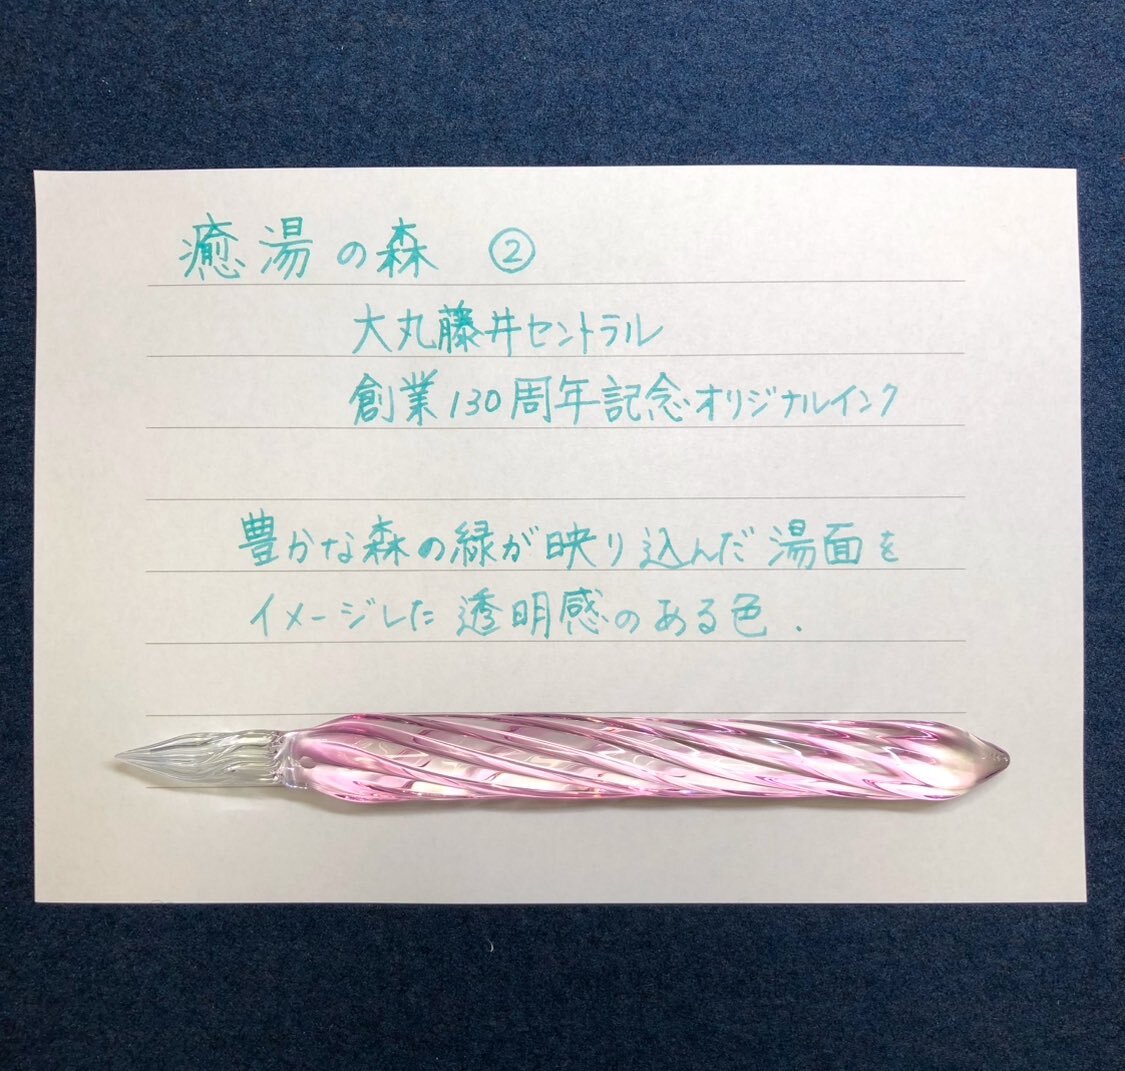 癒湯の森 ②
大丸藤井セントラル
創業130周年記念オリジナルインク
豊かな森の緑が映り込んだ湯面を
イメージした透明感のある色.